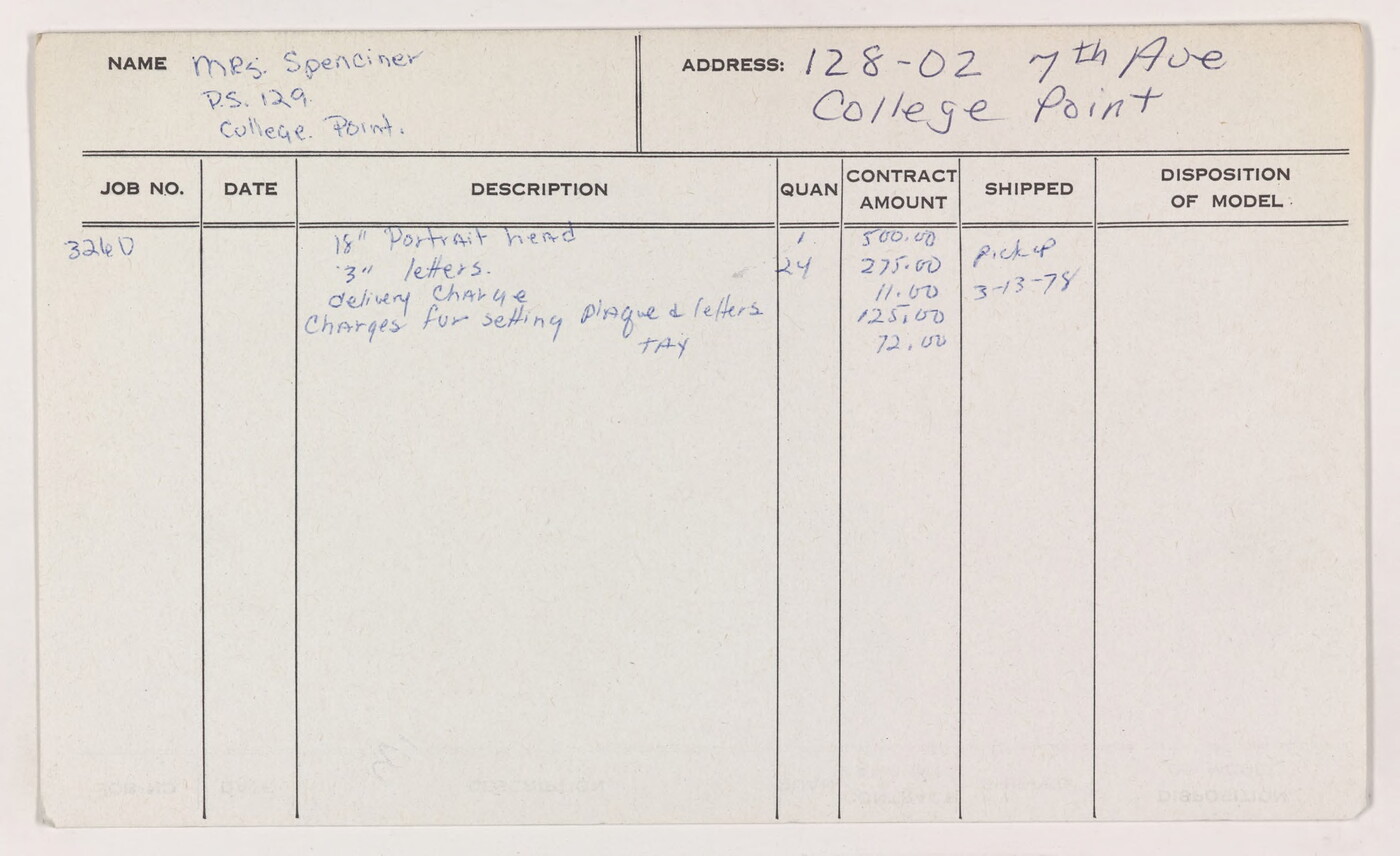 NAME Mrs. Spenciner
P.S. 129.
College. Point.
ADDRESS: 128-02 7th Ave
College Point
JOB NO. DATE DESCRIPTION QUAN CONTRACT AMOUNT SHIPPED DISPOSITION OF MODEL
18" Portrait head 1. 500.00 Pickup
3" letters. 24 275.00
delivery Charge 11.00 3-13-78
Charges for setting Plaque & letters 125.00
TAX 72.00